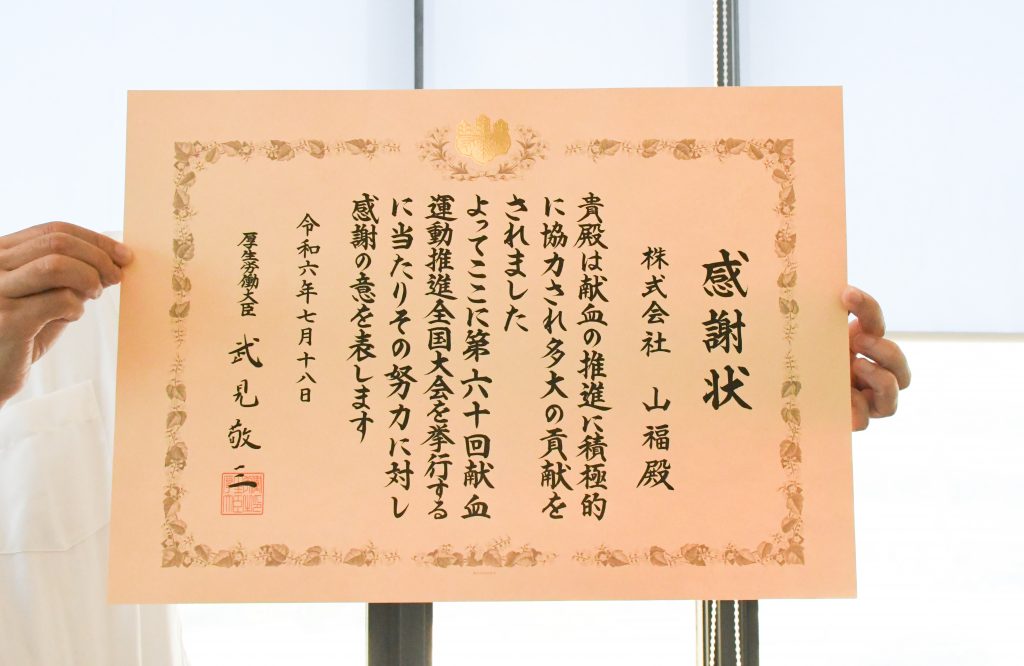 感謝状
株式会社 山福殿
貴殿は献血の推進に積極的
に協力され多大の貢献を
されました
よってここに第六十回献血
運動推進全国大会を挙行する
に当たりその努力に対し
感謝の意を表します
令和六年七月十八日
厚生労働大臣 武見敬三